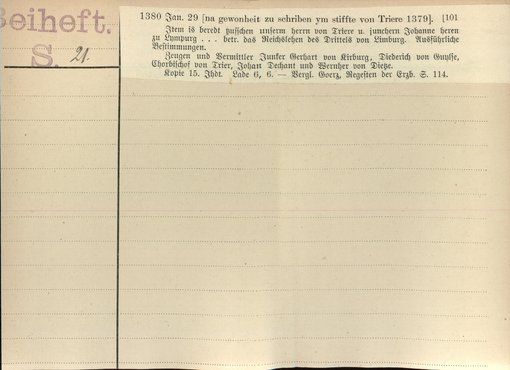 Beiheft.
S. 21.
1380 Jan. 29 [na gewonheit zu schriben ym stiffte von Triere 1379]. [101
Item is beredt zusschen unserm herrn von Triere u. junchern Johanne heren
zu Lympurg . . . betr. das Reichslehen des Drittels von Limburg. Ausführliche
Bestimmungen.
Zeugen und Vermittler Junker Gerhart von Kirburg, Diederich von Guylse,
Chorbischof von Trier, Johan Dechant und Wernher von Dietze.
Kopie 15. Jhdt. Lade 6, 6. — Vergl. Goerz, Regesten der Erzb. S. 114.